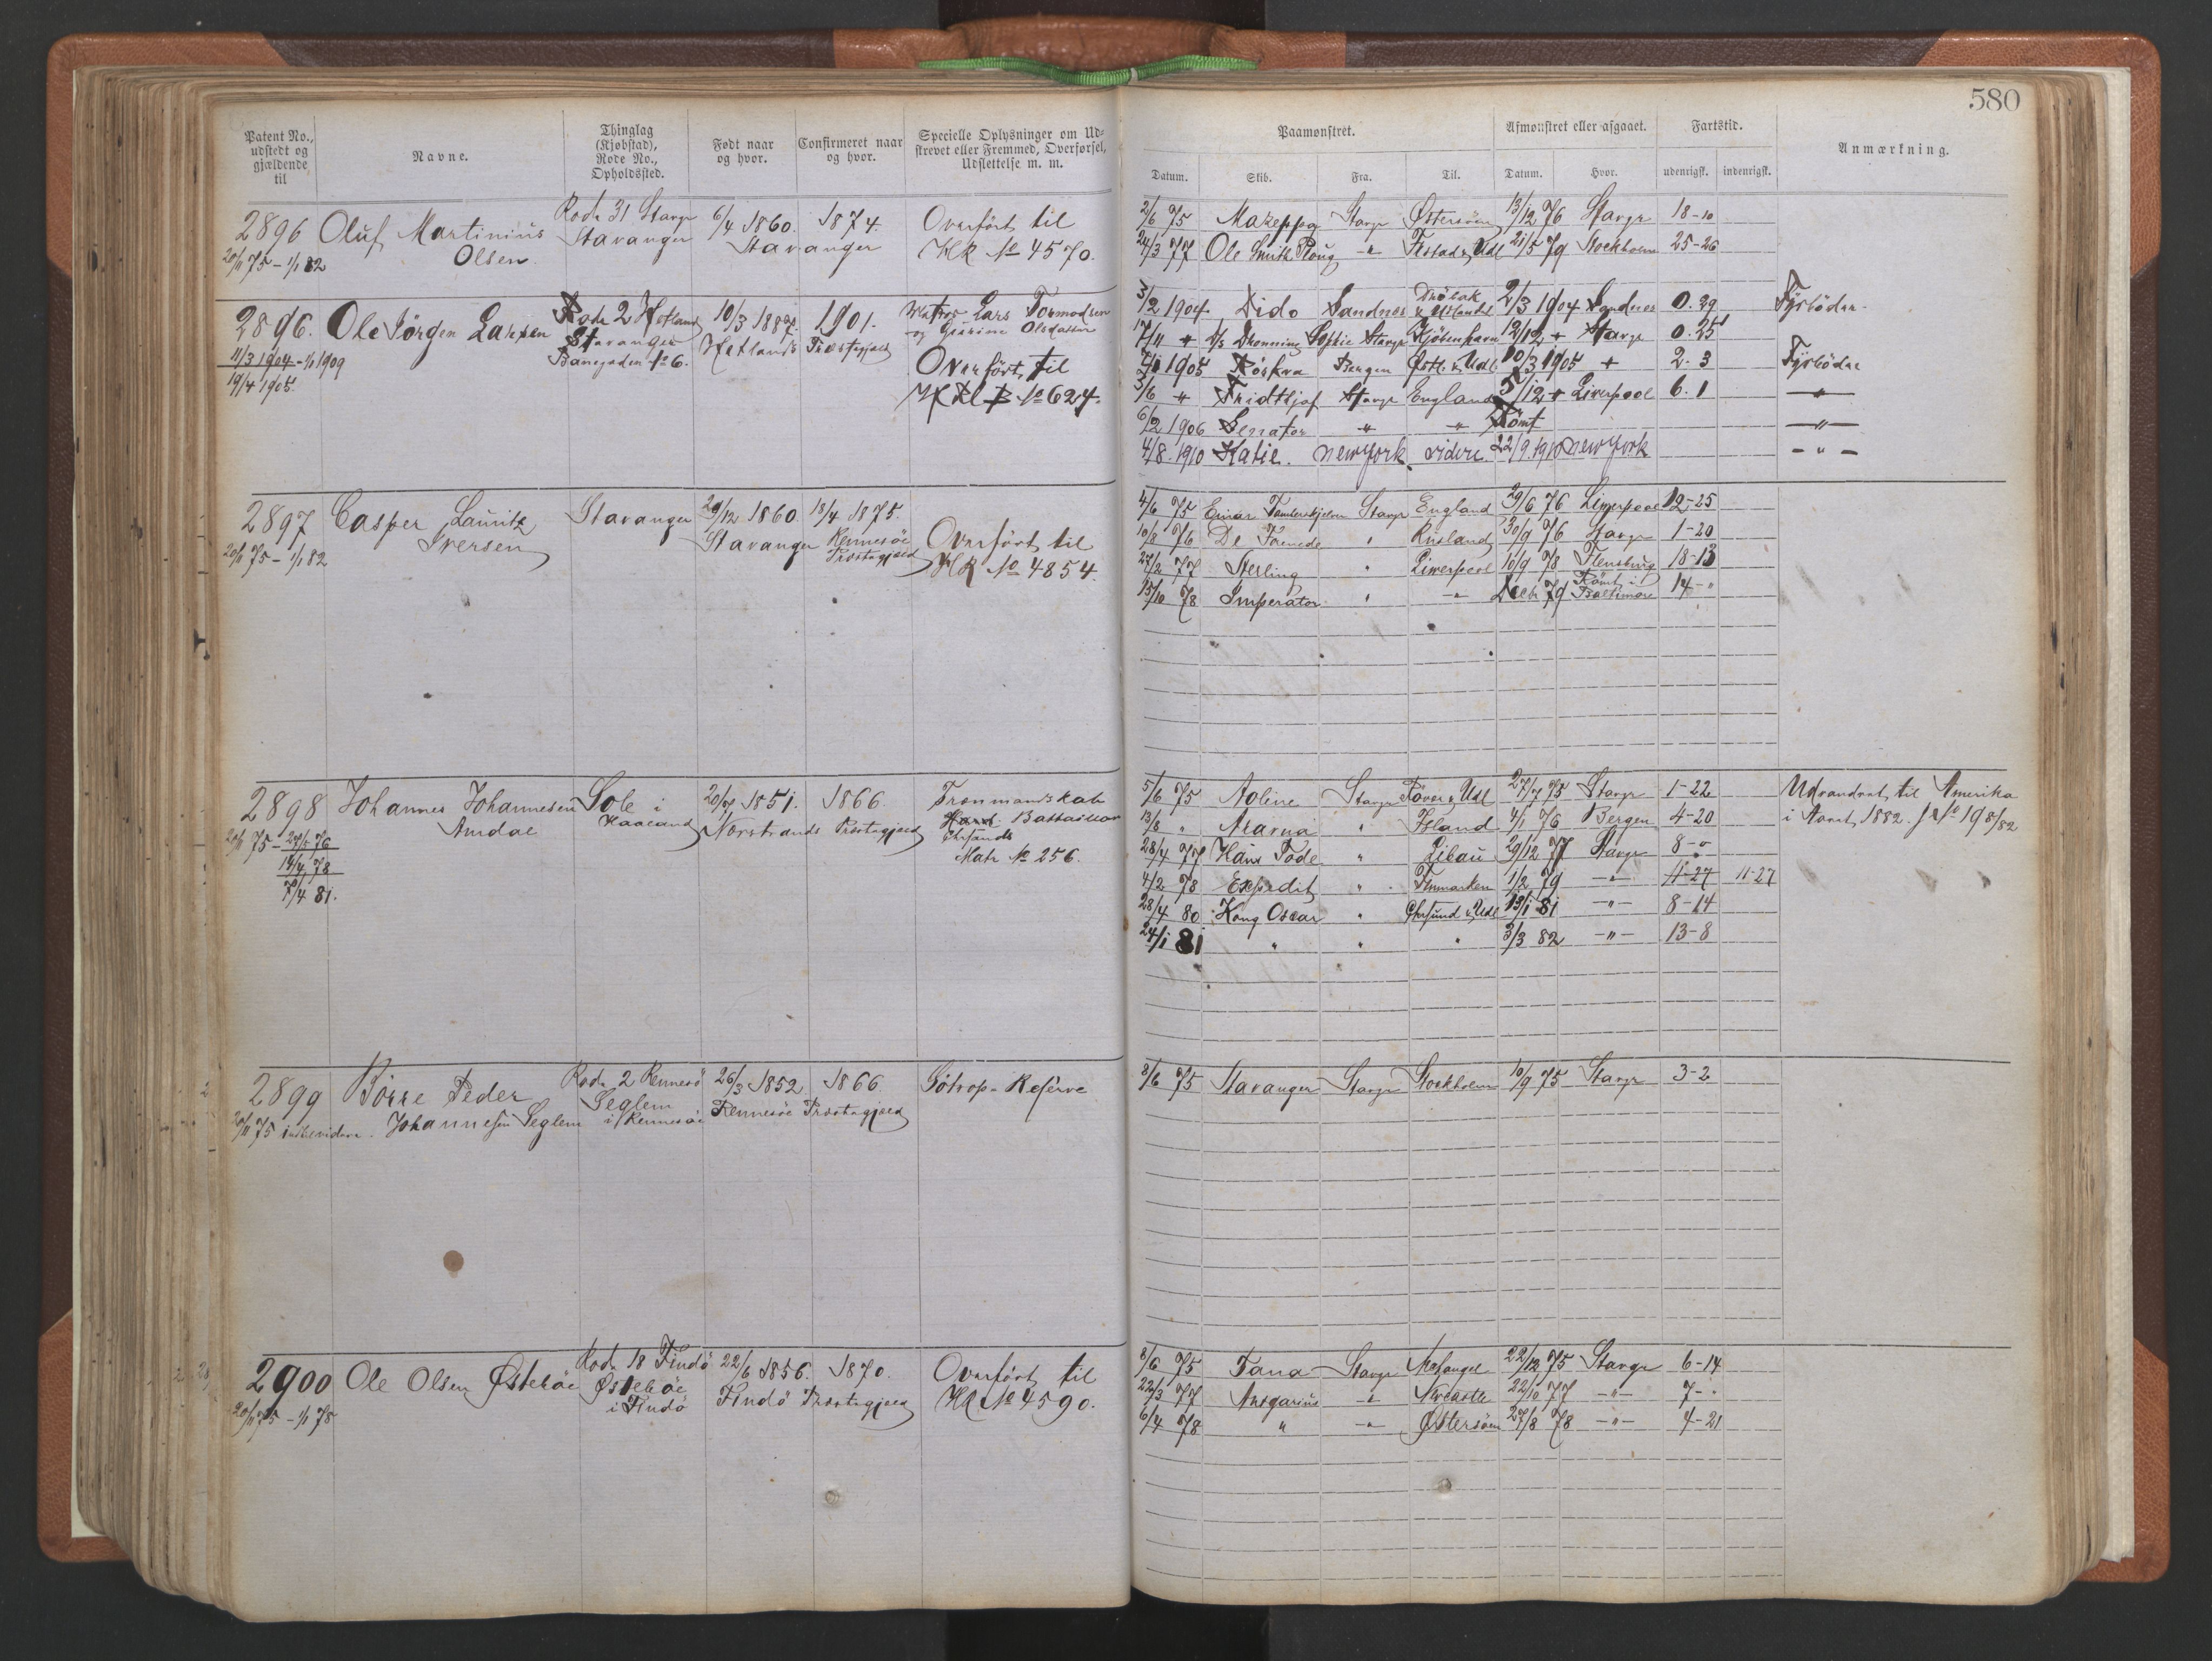 580
Patent No., udstedt og gjældende til
Navne.
Thinglag (Kjøbstad), Rode No., Opholdssted.
Født naar og hvor.
Confirmeret naar og hvor.
Specielle Oplysninger om Udstrevet eller Fremmed, Overførsel, Udslettelse m. m.
Paamønstret.
Afmønstret eller afgaaet.
Fartstid.
Anmærkning.
Datum. Skib. Fra. Til. Datum. Hvor. udenrigst. indenrigst.
2896 Oluf Martinius Rode 31 Stavgr 6/4 1860. 1874. Overført til
20/11 75 – 1/1 82 Olsen Stavanger Stavanger HR No 4570.
2/6 75 Mazeppa Stavgr Østersöen 13/12 76 Stavgr 18-10
24/3 77 Ole Smith Ploug -"- & Udl 21/5 79 Stockholm 25-26
2896. Ole Jörgen Larsen Rode 2 Hetland 10/3 1887. 1901. Lars Tormodsen
11/3 1904 – 1/1 1909 Stavanger Hetlands Præstegjeld og Olsdatter
19/4 1905. Banegaden No 6. Overført til
No 624.
3/2 1904 Dido Sandnes Dröbak & Udlandet 2/3 1904 Sandnes 0.29 Fyrböder
17/11 " D/s Dronning Sophie Stavgr Kjöbenhavn 12/12 " Stavgr 0.25
1905 Röskva Bergen Östl. & Udl. 10/3 1905 " 2.3 Fyrböder
3/6 " Fridthjof Stavgr England 5/12 " Liverpool 6.1 -"-
6/2 1906 Senator " " Römt -"-
4/8 1910 Katie. New York videre 22/9 1910 New York - " -
2897 Casper Lauritz Stavanger 29/12 1860. 18/4 1875.
20/11 75 – 1/1 82 Iversen Stavanger Rennesöe Præstegjeld Overført til
HR No 4854.
4/6 75 Einar Tamberskjelver Stavgr England 29/6 76 Liverpool 12-25
10/8 76 De Forenede " Rusland 30/9 76 Stavgr 1-20
27/2 77 Sterling " Liverpool 10/9 78 Flensburg 18-13
15/10 78 Imperator " -"- Decb 79 Römt i Baltimore 14-"
2898 Johannes Johannesen Sole i 20/7 1851. 1866.
20/11 75 – 27/5 76 Amdal Haaland Norstrands Præstegjeld Bataillon
14/4 78 Chrsands
7/4 81. Matr No 256.
5/6 75 Aoline Stavgr & Udl 27/7 75 Stavgr 1-22 Udvandret til Amerika
13/8 " Ararna " Island 4/1 76 Bergen 4-20 i Aaret 1882. J No 198/82
28/4 77 Hans Tode " Libau 29/12 77 Stavgr 8-0
4/2 78 Expedit " Finmarken 1/2 79 -"- 11-27
28/4 80 Kong Oscar " Chrsund & Udl 13/1 81 -"- 8-14
24/1 81 " " " 3/3 82 -"- 13-8
2899 Börre Peder Rode 2 Rennesö 26/3 1852 1866 Götrop-Reserve
20/11 75 indtil videre. Johannesen Seglem Seglem i Rennesöe Rennesöe Præstegjeld
8/6 75 Stavanger Stavgr Stockholm 10/9 75 Stavgr 3-2
2900 Ole Olsen Østeböe Rode 18 Findö 22/6 1856. 1870. Overført til
20/11 75 – 1/1 78 Østeböe i Findö Findö Præstegjeld HR No 4590.
8/6 75 Tana Stavgr Archangel 22/12 75 Stavgr 6-14
22/3 77 Ansgarius -"- Newcastle 22/10 77 -"- 7-"
6/4 78 " -"- Østersöen 27/8 78 -"- 4-21